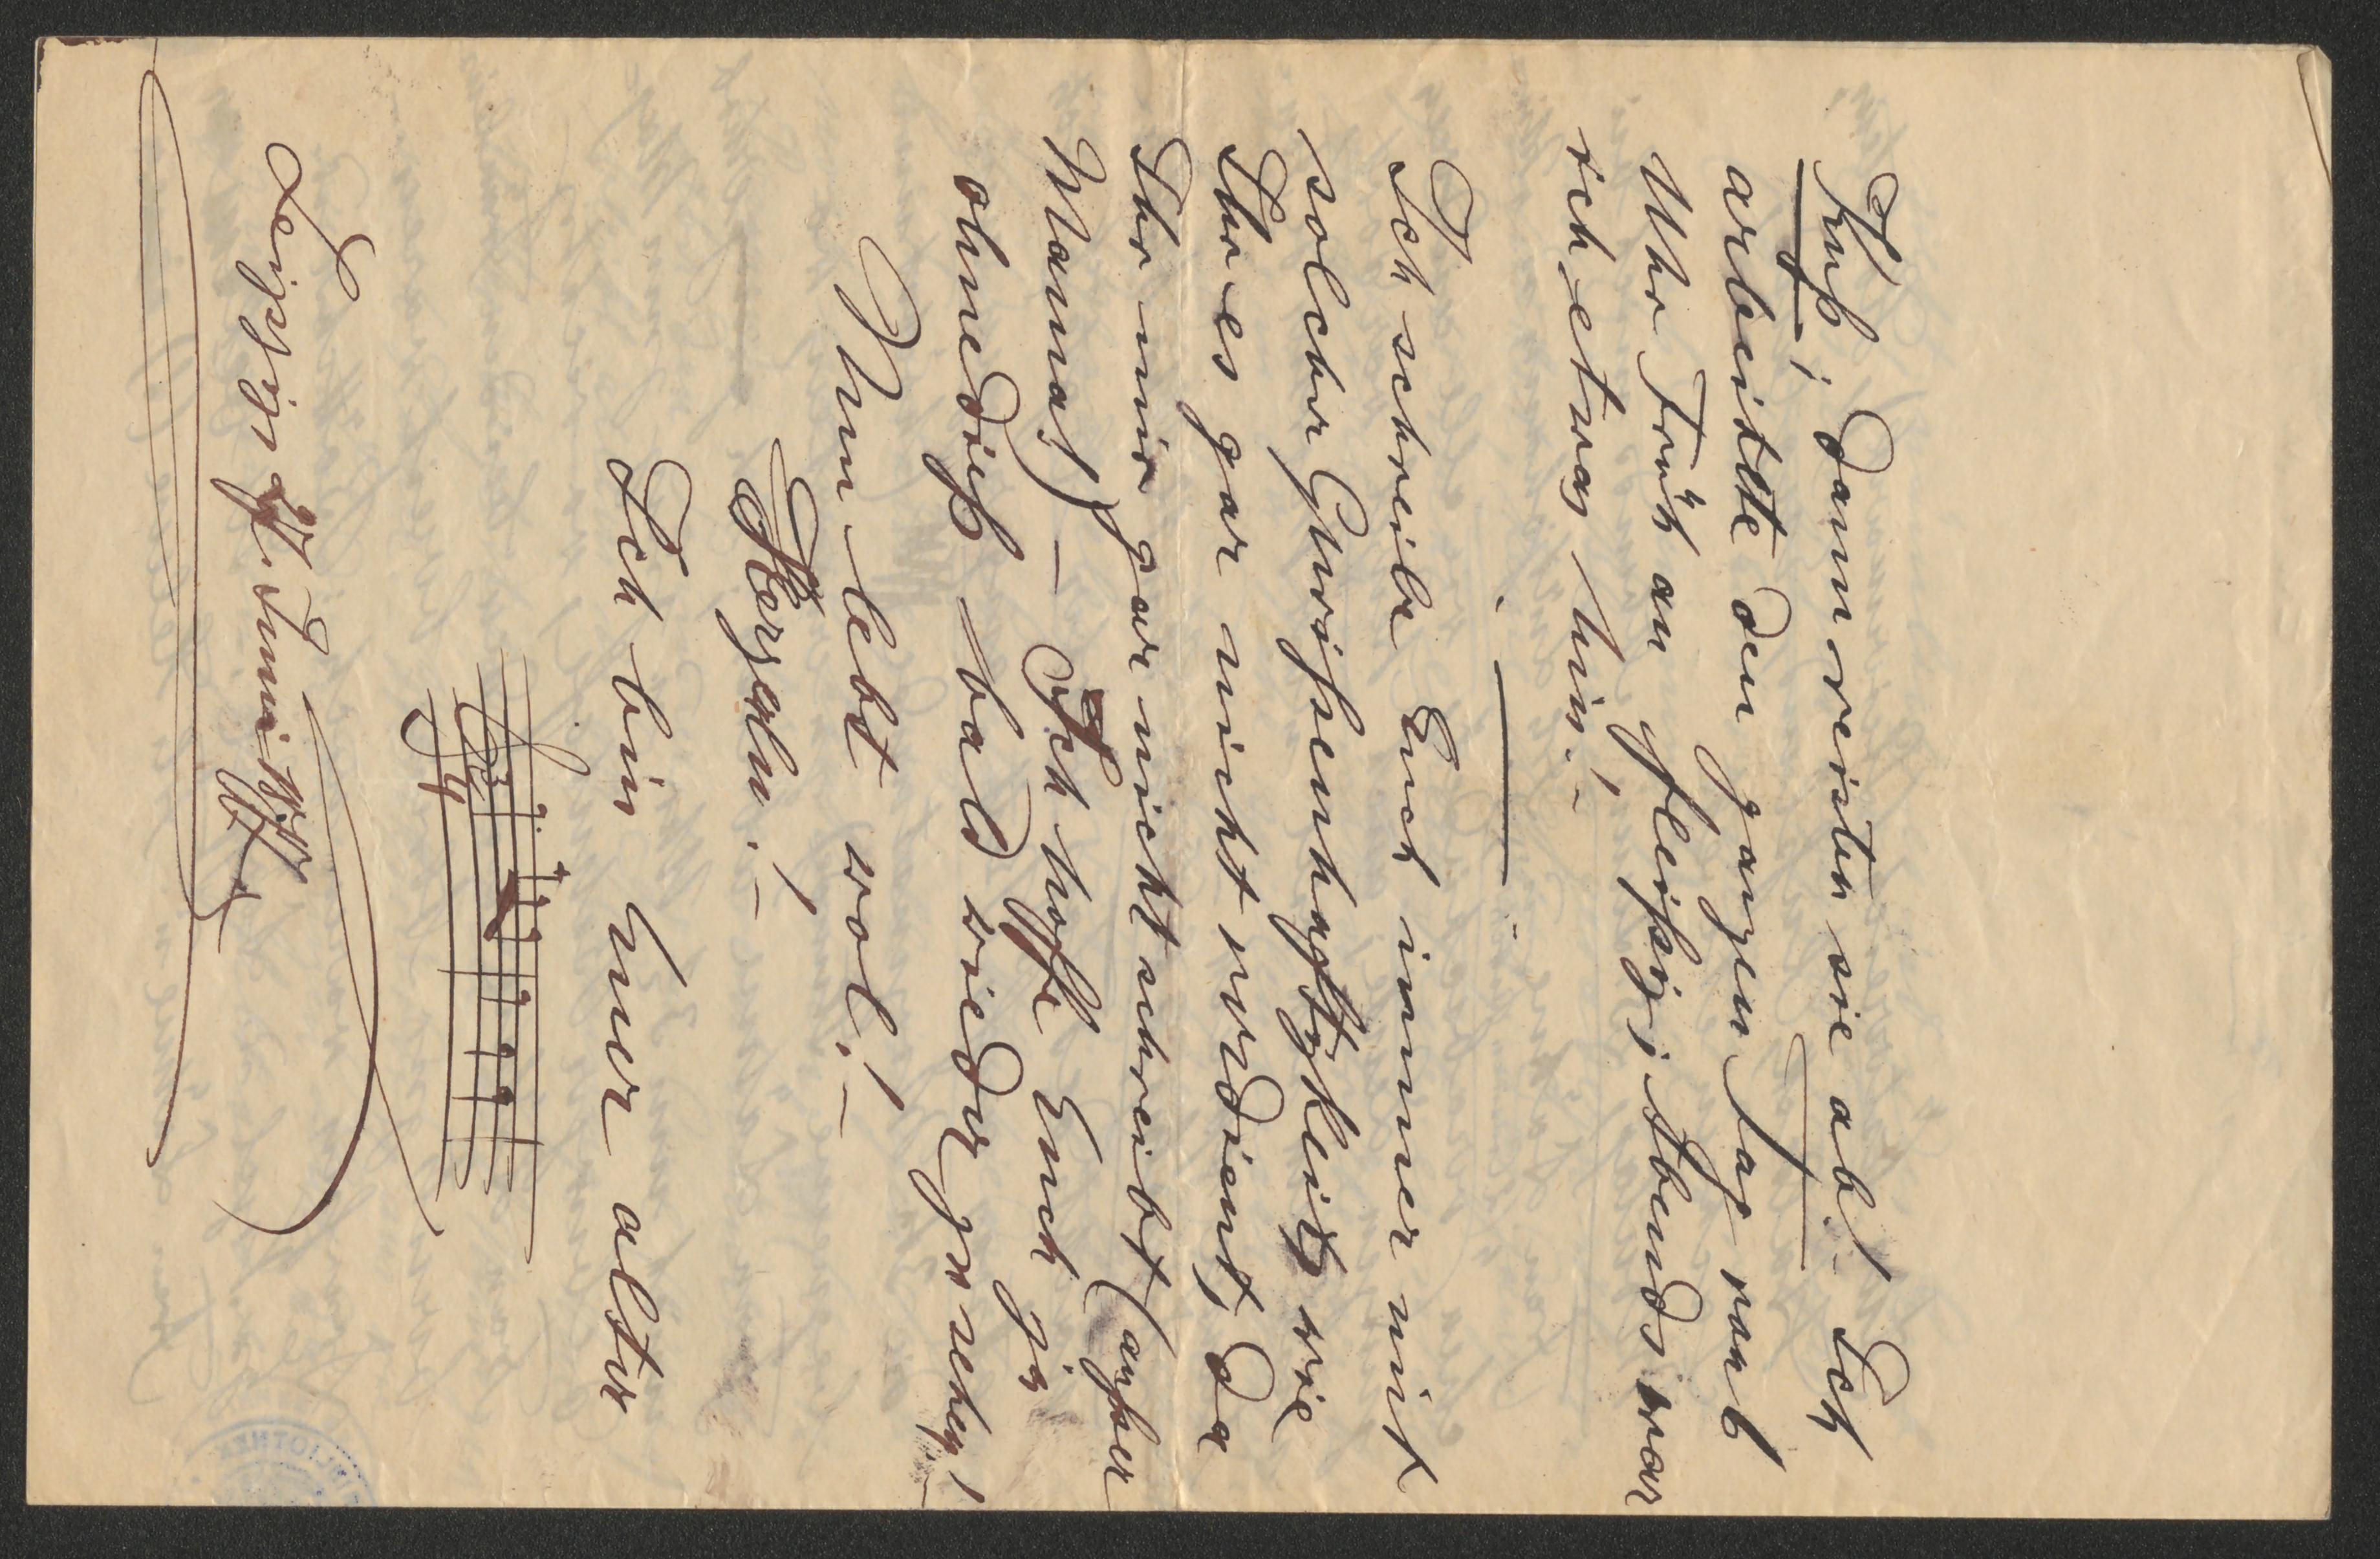 Kuß; dann reisten sie ab! Ich
arbeitete den ganzen Tag vom
Uhr Früh an fleißig; abends war
ich etwas hin!
Ich schreibe Euch immer mit
solcher Gewißenhaftigkeit, wie
Ihr es gar nicht verdient, da
Ihr mir gar nicht schreibt (außer
Mama) – Ich hoffe Euch hier
ohnedieß bald wieder zu sehen!
Nun lebt wol! –
Herzeln! –
Ich bin Euer alter
Leipzig